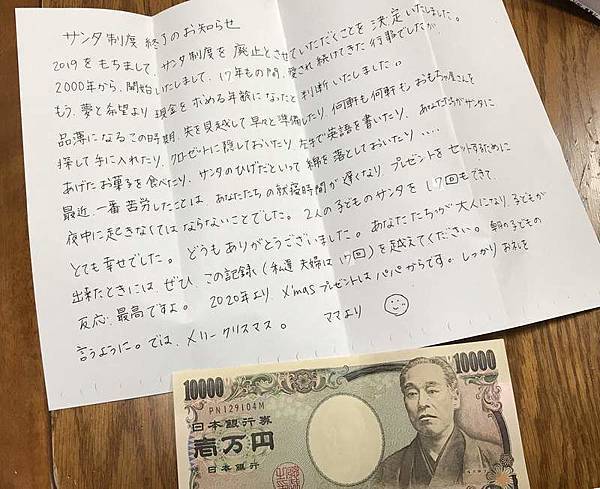 サンタ制度 終了のお知らせ
2019をもちまして、サンタ制度を廃止とさせていただくことを決定いたしました。
2000年から、開始いたしまして、17年もの間、愛され続けてきた行事でしたが、
もう、夢と希望より現金をボめる年齢になったと判断いたしました。
品薄になるこの時期、先を見越して早々と準備したり、何軒も何軒もおもちゃ屋さんを
探して手に入れたり、クローゼットに隠しておいたり、左手で英語を書いたり、あなたたちがサンタに
あげたお菓子を食べたり、サンタのひげだといって綿を落としておいたり....
最近、一番苦労したことは、あなたたちの就寝時間が遅くなり、プレゼントをセットするために
夜中に起きなくてはならないことでした。2人の子どものサンタを17回もできて、
とても幸せでした。どうもありがとうございました。あなたたちが大人になり、子どもが
出来たときには、ぜひ、この記録(私達夫婦は17回)を越えてください。朝の子どもの
反応、最高ですよ。2020年より X'masプレゼントはパパからです。しっかりお礼を
言うように。では、メリークリスマス。 ママより
10000
PN129104M
日本銀行券
壱万円
日本銀行
10000